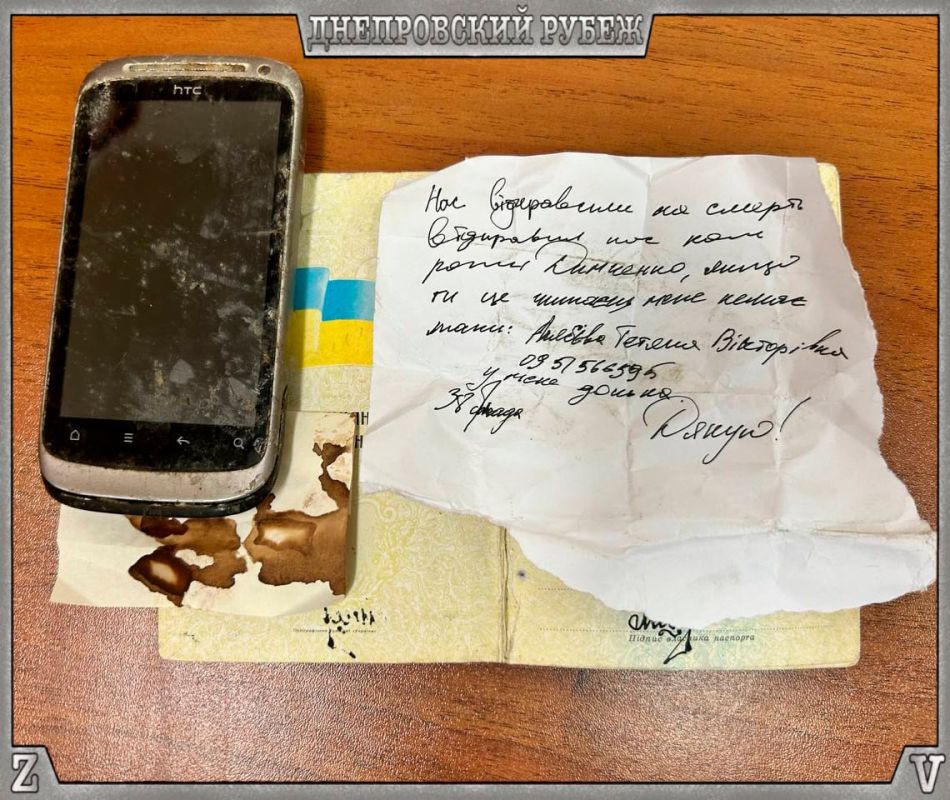 ДНЕПРОВСКИЙ РУБЕЖ
hTC
Нас відправили на смерть
відправив нас ком
роти якщо
ти це читаєш мене немає
мати: Тетяна Вікторівна
у мене донька
38
Дякую!
Підпис власника паспорта
Z V